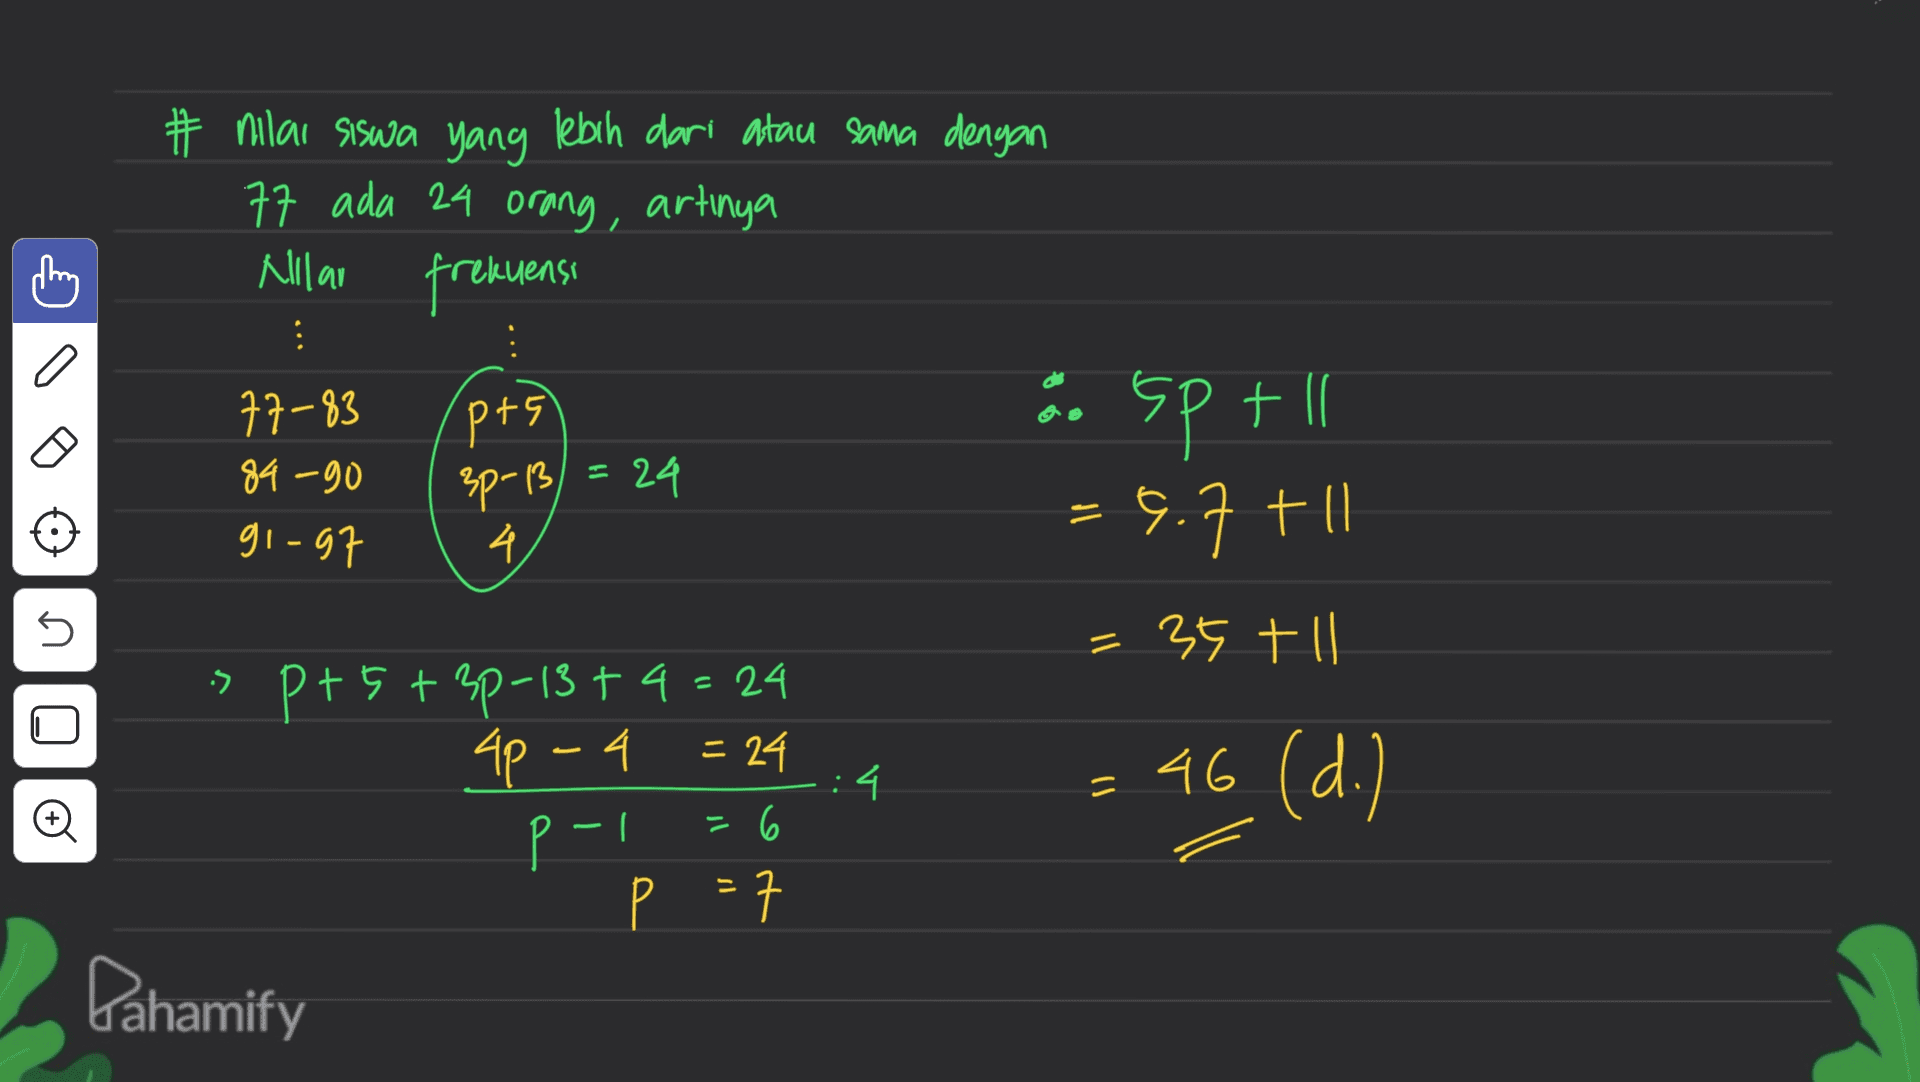 # nilai siswa yang lebih dari atau sama dengan
77 ada 24 orang, artinya
Nilai frekuensi
⋮ ⋮
77-83 p+5
84-90 3p-13 = 24
91-97 4
p+5+3p-13+4 = 24
4p-4 = 24 :4
p-1 = 6
p = 7
5p + 11
= 5.7 + 11
= 35 + 11
= 46 (d.)
Pahamify